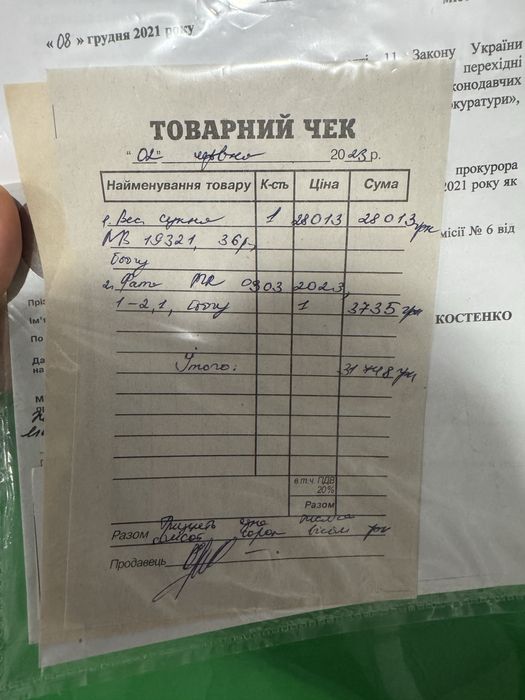 « 08 » грудня 2021 року
11 Закону України
перехідні
конодавчих
куратури»,
прокурора
2021 року як
місії № 6 від
КОСТЕНКО
ТОВАРНИЙ ЧЕК
"02" червня 2023 р.
Найменування товару К-сть Ціна Сума
1. Вес. сукня 1 28013 28013 грн
МВ 19321, 36р,
2. Фата MR 0303 2023,
1-2,1, 1 3735 грн
Итого: 31748 грн
в т.ч. ПДВ
20%
Разом
Разом Тридцять одна тисяча
сімсот сорок вісім грн
Продавець
Прі
Ім'
По
Да
на